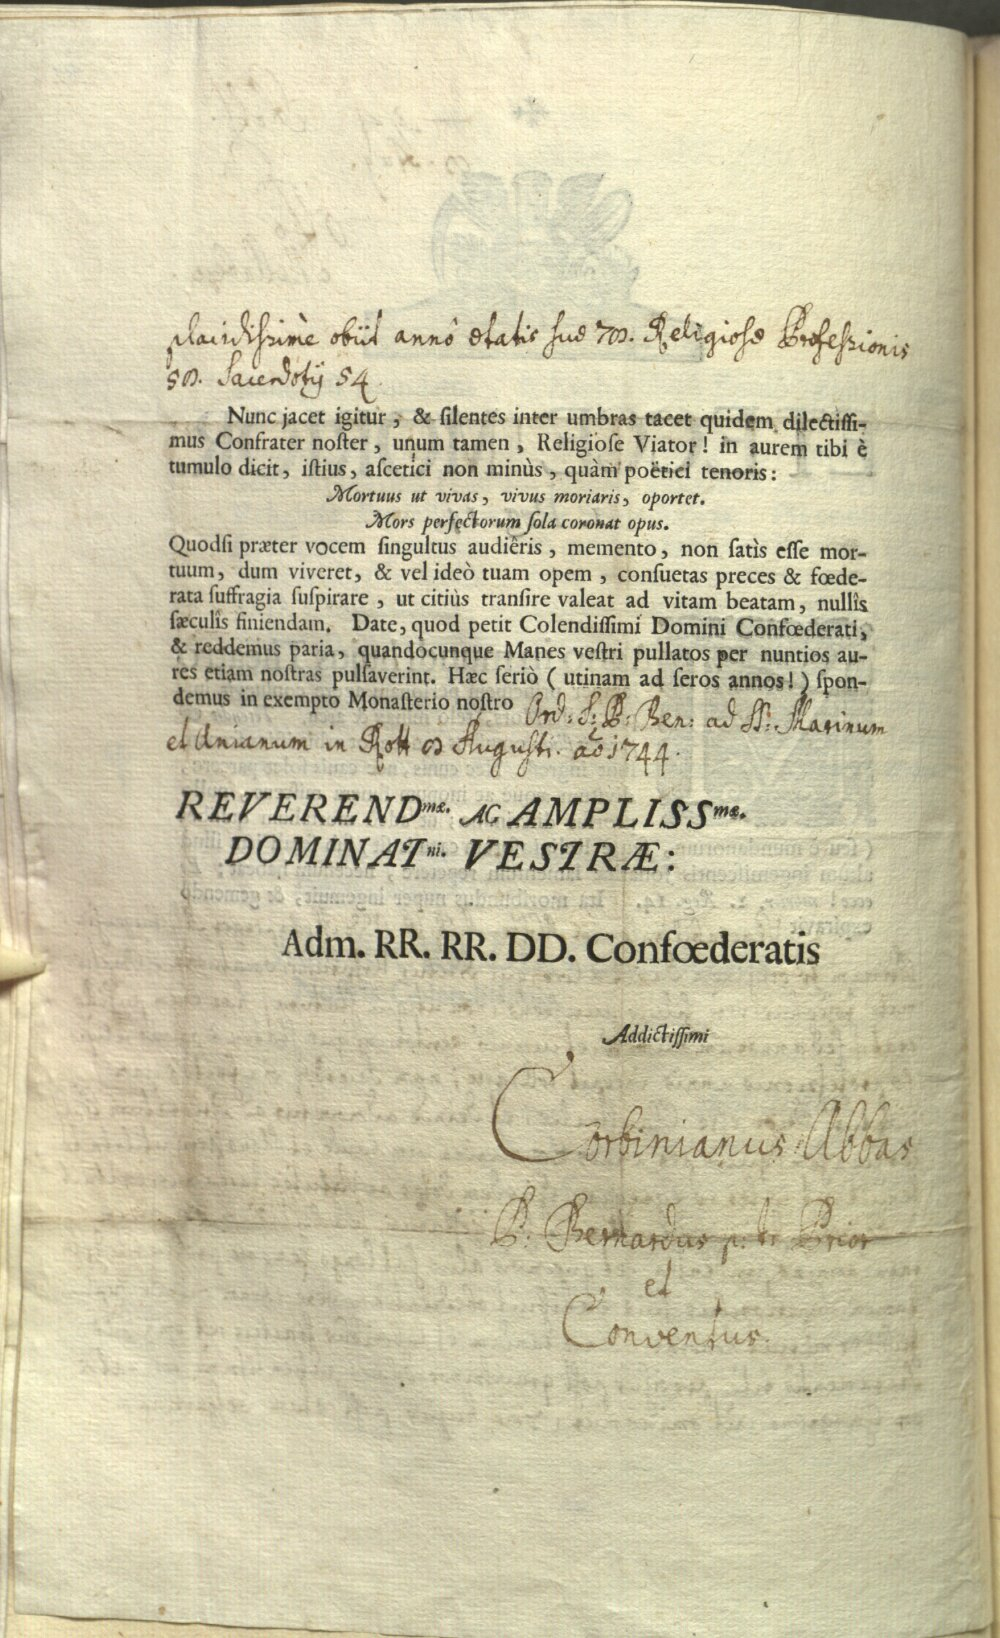 placidissimè obiit annô ætatis suæ 78. Religiosæ Professionis
58. Sacerdotij 54.
Nunc jacet igitur, & silentes inter umbras tacet quidem dilectissi-
mus Confrater noster, unum tamen, Religiose Viator! in aurem tibi è
tumulo dicit, istius, ascetici non minùs, quàm poëtici tenoris:
Mortuus ut vivas, vivus moriaris, oportet.
Mors perfectorum sola coronat opus.
Quodsi præter vocem singultus audiêris, memento, non satìs esse mor-
tuum, dum viveret, & vel ideò tuam opem, consuetas preces & fœde-
rata suffragia suspirare, ut citiùs transire valeat ad vitam beatam, nullîs
sæculîs finiendam. Date, quod petit Colendissimi Domini Confœderati,
& reddemus paria, quandocunque Manes vestri pullatos per nuntios au-
res etiam nostras pulsaverint. Hæc seriò ( utinam ad seros annos! ) spon-
demus in exempto Monasterio nostro Ord: S: P: Ben: ad SS: Marinum
et Anianum in Rott 8 Augusti. aõ 1744.
REVERENDmæ. AC AMPLISSmæ.
DOMINATni. VESTRÆ:
Adm. RR. RR. DD. Confœderatis
Addictissimi
Corbinianus Abbas
P. Bernardus p: t: Prior
et
Conventus.